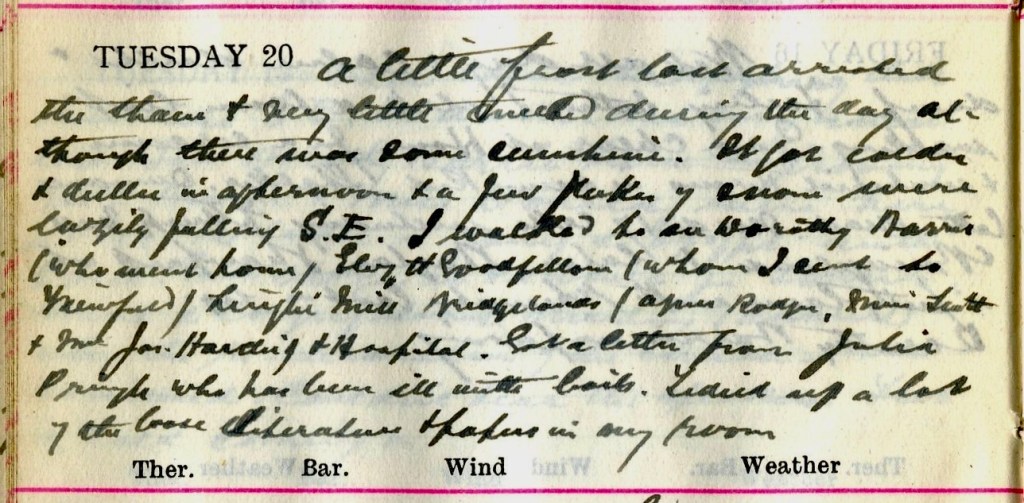 TUESDAY 20 A little frost last arrested
the thaw & very little melted during the day al-
though there was some sunshine. It got colder
& duller in afternoon & a few flakes of snow were
lazily falling S.E. I walked to see Dorothy Harris
(who went home) & Goodfellow (whom I sent to
Viewfield) Mill Bridgelands (Rodger, Scott
& Mrs Jas. Harding & Hospital. Got a letter from Julia
Pringle who has been ill with boils. Tidied up a lot
of the loose literature & papers in my room
Ther. Bar. Wind Weather